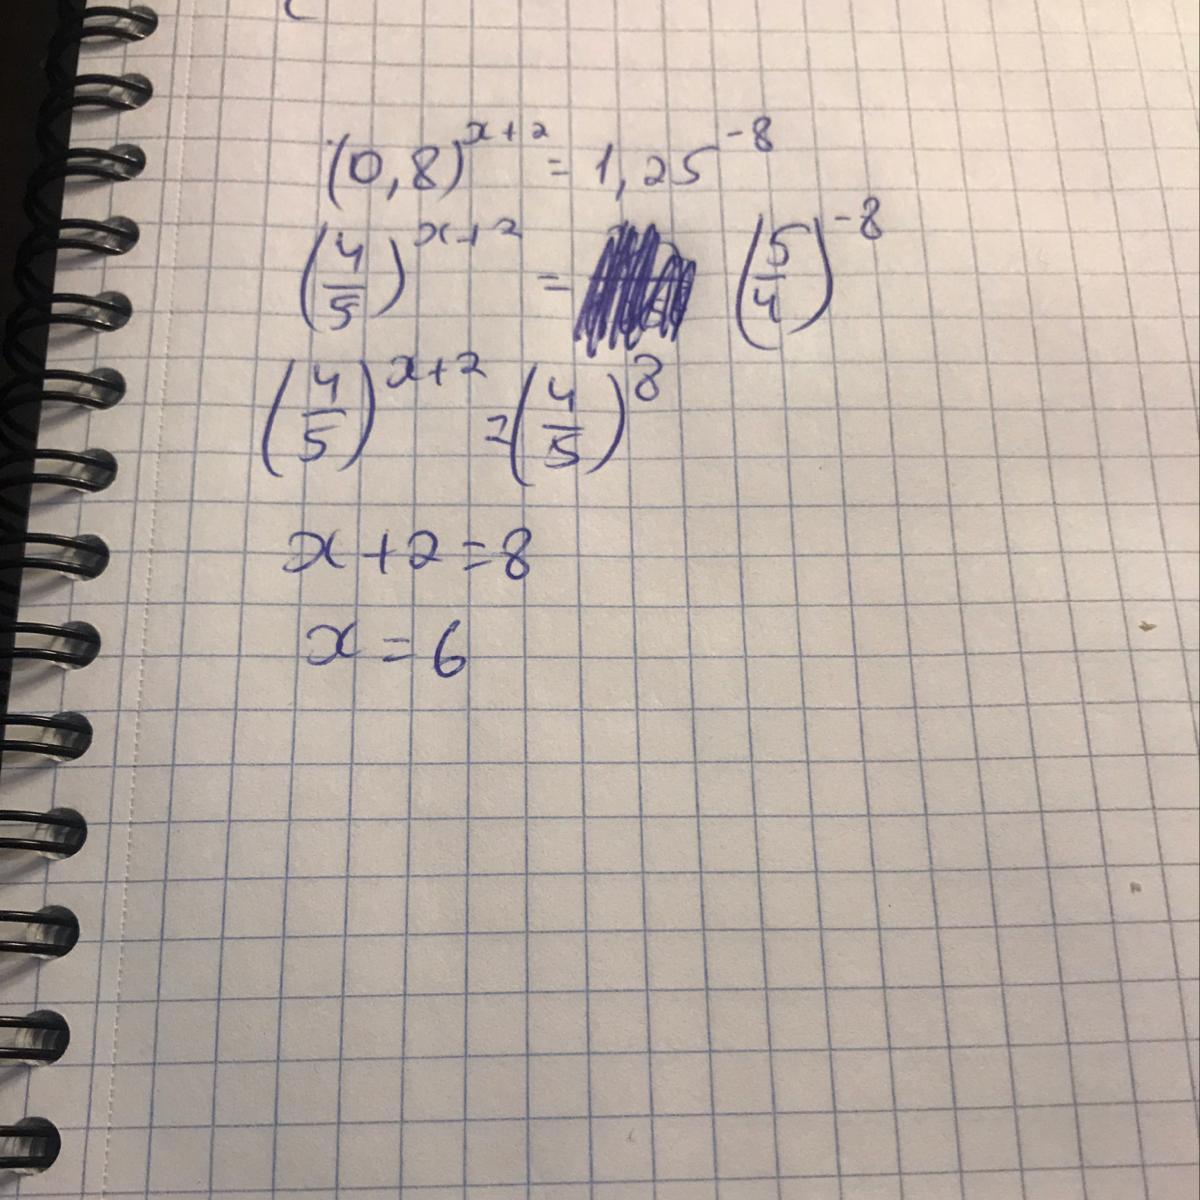 (0,8)^{x+2} = 1,25^{-8}
(4/5)^{x+2} = (5/4)^{-8}
(4/5)^{x+2} = (4/5)^{8}
x + 2 = 8
x = 6